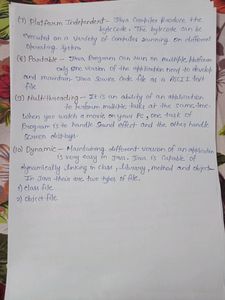 (7) Platform Independent - Java Compiler Produce the
bytecode. The bytecode can be
executed on a Variety of Computer Running on different
Operating System
(8) Portable - Java Program Can Run on multiple platform
only one version of the application need to develop
and maintain Java Source Code file as a ASCII Text
file
(9) Multi-threading - It is an ability of an application
to perform multiple task at the same time.
When you watch a movie on your Pc, one task of
Program is to handle Sound effect and the other handle
Screen display.
(10) Dynamic - Maintaining different version of an application
is very easy in Java. Java is Capable of
dynamically linking in class, library, method and object.
In Java there are two types of file.
1) class file
2) object file